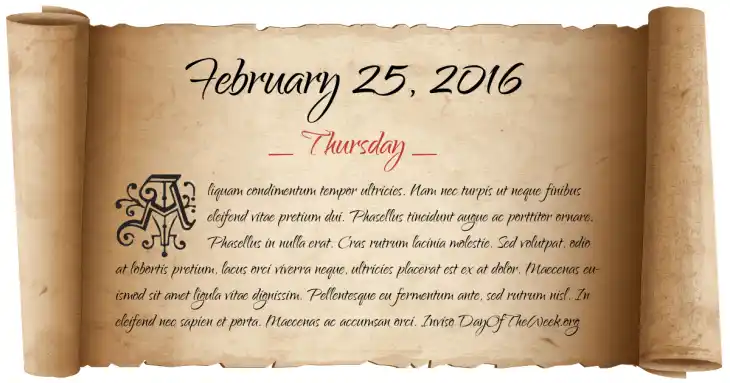 February 25, 2016
_ Thursday _
Aliquam condimentum tempor ultricies. Nam nec turpis ut neque finibus
eleifend vitae pretium dui. Phasellus tincidunt augue ac porttitor ornare.
Phasellus in nulla erat. Cras rutrum lacinia molestie. Sed volutpat, odio
at lobortis pretium, lacus orci viverra neque, ultricies placerat est ex at dolor. Maecenas eu-
ismod sit amet ligula vitae dignissim. Pellentesque eu fermentum ante, sed rutrum nisl. In
eleifend nec sapien et porta. Maecenas ac accumsan orci. Inviso DayOfTheWeek.org